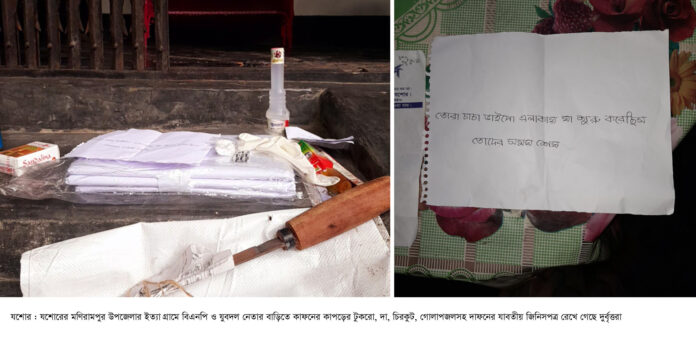 Sandalina
তোরা চাচা ভাইপো এলাকায় যা শুরু করেছিস
তোদের সময় শেষ
যশোর : যশোরের মণিরামপুর উপজেলার ইত্যা গ্রামে বিএনপি ও যুবদল নেতার বাড়িতে কাফনের কাপড়ের টুকরো, দা, চিরকুট, গোলাপজলসহ দাফনের যাবতীয় জিনিসপত্র রেখে গেছে দুর্বৃত্তরা